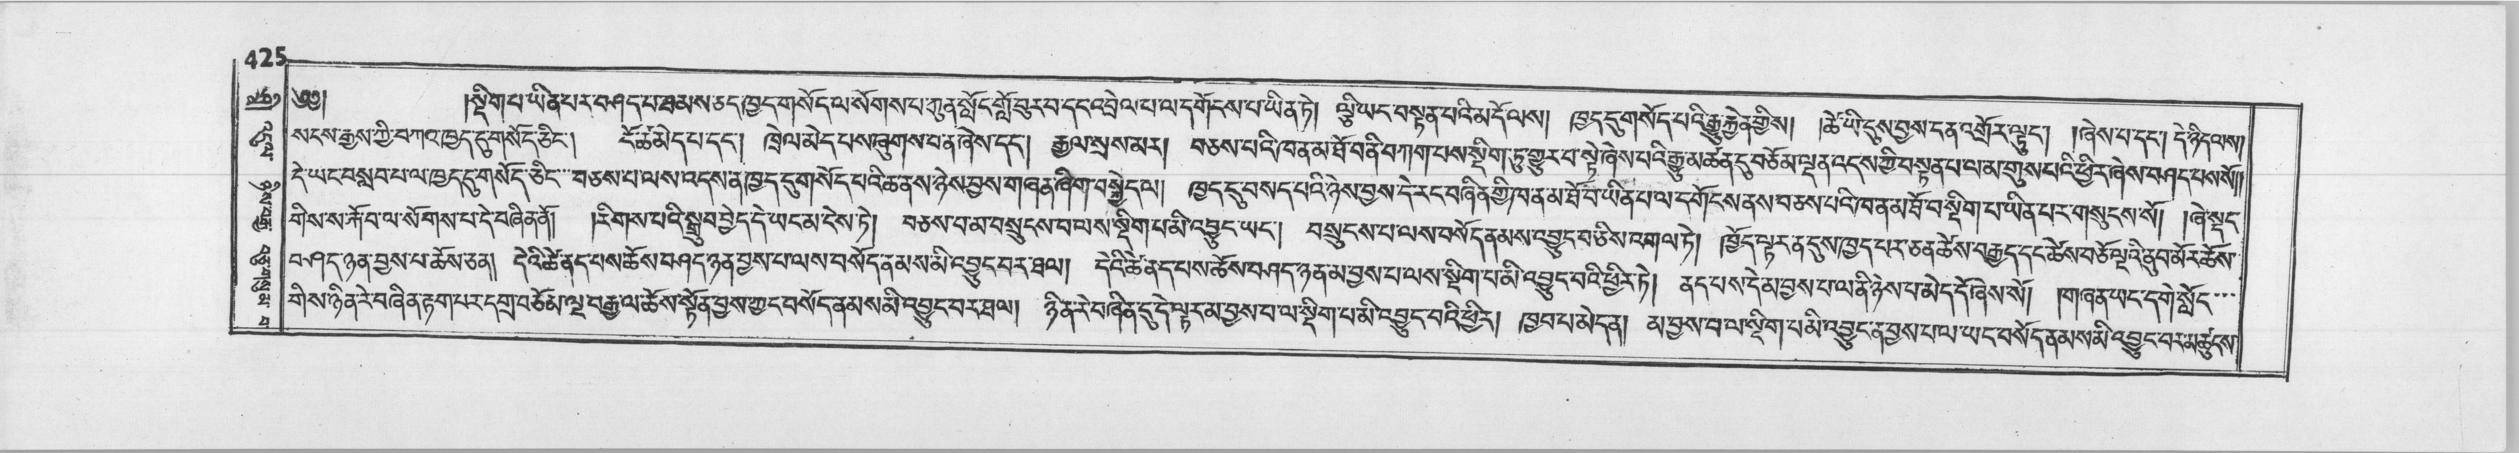 425
༄༅། །སྡིག་པ་ཡིན་པར་བཤད་པ་ཐམས་ཅད་ཁྱད་གསོད་ལ་སོགས་པ་ཀུན་སློང་གློ་བུར་བ་དང་འབྲེལ་པ་ལ་དགོངས་པ་ཡིན་ཏེ། ལྷུ་ཡང་བསྟན་པའི་མདོ་ལས། ཁྱད་དུ་གསོད་པའི་རྒྱུ་རྐྱེན་གྱིས། །ཚེ་ཡི་དུས་བྱས་དན་འགྲོར་ལྟུང་། །ཞེས་པ་དང་། དེ་ཉིད་ལས།
སངས་རྒྱས་ཀྱི་བཀའ་ཁྱད་དུ་གསོད་ཅིང་། ངོ་ཚ་མེད་པ་དང་། ཁྲེལ་མེད་པས་ཞུགས་བན་ཞེས་དང་། རྒྱལ་སྲས་མར། བཅས་པའི་ཁ་ན་མ་ཐོ་བ་ནི་བཀག་པས་སྡིག་ཏུ་གྱུར་བ་སྟེ་ཞེས་པའི་རྒྱུ་མཚན་དུ་བཅོམ་ལྡན་འདས་ཀྱི་བསྟན་པ་ལ་མ་གུས་པའི་ཕྱིར་ཞེས་བཤད་པས་སོ།།
དེ་ཡང་བསླབ་པ་ལ་ཁྱད་དུ་གསོད་ཅིང་བཅས་པ་ལས་འདས་ན་ཁྱད་དུ་གསོད་པའི་ཆ་ནས་ཉེས་བྱས་གཞན་ཞིག་བསྐྱེད་ལ། ཁྱད་དུ་བསད་པའི་ཉེས་བྱས་དེ་རང་བཞིན་གྱི་ཁ་ན་མ་ཐོ་བ་ཡིན་པ་ལ་དགོངས་ནས་བཅས་པའི་ཁ་ན་མ་ཐོ་བ་སྡིག་པ་ཡིན་པར་གསུངས་སོ། །ཞེ་སྡང
གིས་ས་རྐོ་བ་ལ་སོགས་པ་དེ་བཞིན་ནོ། །རིགས་པའི་སྒྲུབ་བྱེད་དེ་ཡང་མ་ངེས་ཏེ། བཅས་པ་མ་བསྲུངས་པ་ལས་སྡིག་པ་མི་འབྱུང་ཡང་། བསྲུངས་པ་ལས་བསོད་ནམས་འབྱུང་བ་ཅིས་འགལ་ཏེ། ཁྱོད་ལྟར་ན་དུས་ཁྱད་པར་ཅན་ཚེས་བརྒྱད་དང་ཚེས་བཅོ་ལྔའི་ནུབ་མོར་ཆོས་
བཤད་ཉན་བྱས་པ་ཆོས་ཅན། དེའི་ཚེ་ནད་པས་ཆོས་བཤད་ཉན་བྱས་པ་ལས་བསོད་ནམས་མི་འབྱུང་བར་ཐལ། དེའི་ཚེ་ནད་པས་ཆོས་བཤད་ཉན་མ་བྱས་པ་ལས་སྡིག་པ་མི་འབྱུང་བའི་ཕྱིར་ཏེ། ནད་པས་དེ་མ་བྱས་པ་ལ་ནི་ཉེས་པ་མེད་དོ་ཞེས་སོ། །གཞན་ཡང་དགེ་སློང་
གིས་ཉིན་རེ་བཞིན་རྟག་པར་དགྲ་བཅོམ་ལྔ་བརྒྱ་ལ་ཆོས་སྟོན་བྱས་ཀྱང་བསོད་ནམས་མི་འབྱུང་བར་ཐལ། ཉིན་རེ་བཞིན་དུ་དེ་ལྟར་མ་བྱས་པ་ལ་སྡིག་པ་མི་འབྱུང་བའི་ཕྱིར། ཁྱབ་པ་མེད་ན། མ་བྱས་པ་ལ་སྡིག་པ་མི་འབྱུང་ན་བྱས་པ་ལ་ཡང་བསོད་ནམས་མི་འབྱུང་བར་མཚུངས་